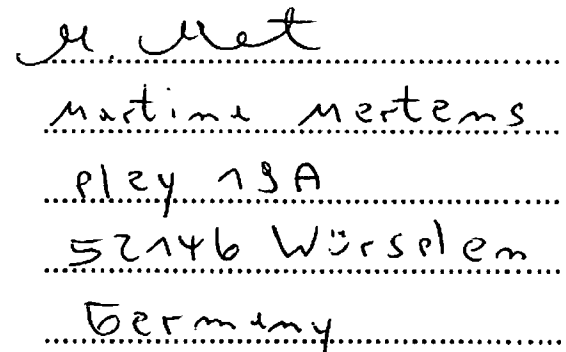 M. Met
Martina Mertens
Pley 19A
52146 Würselen
Germany